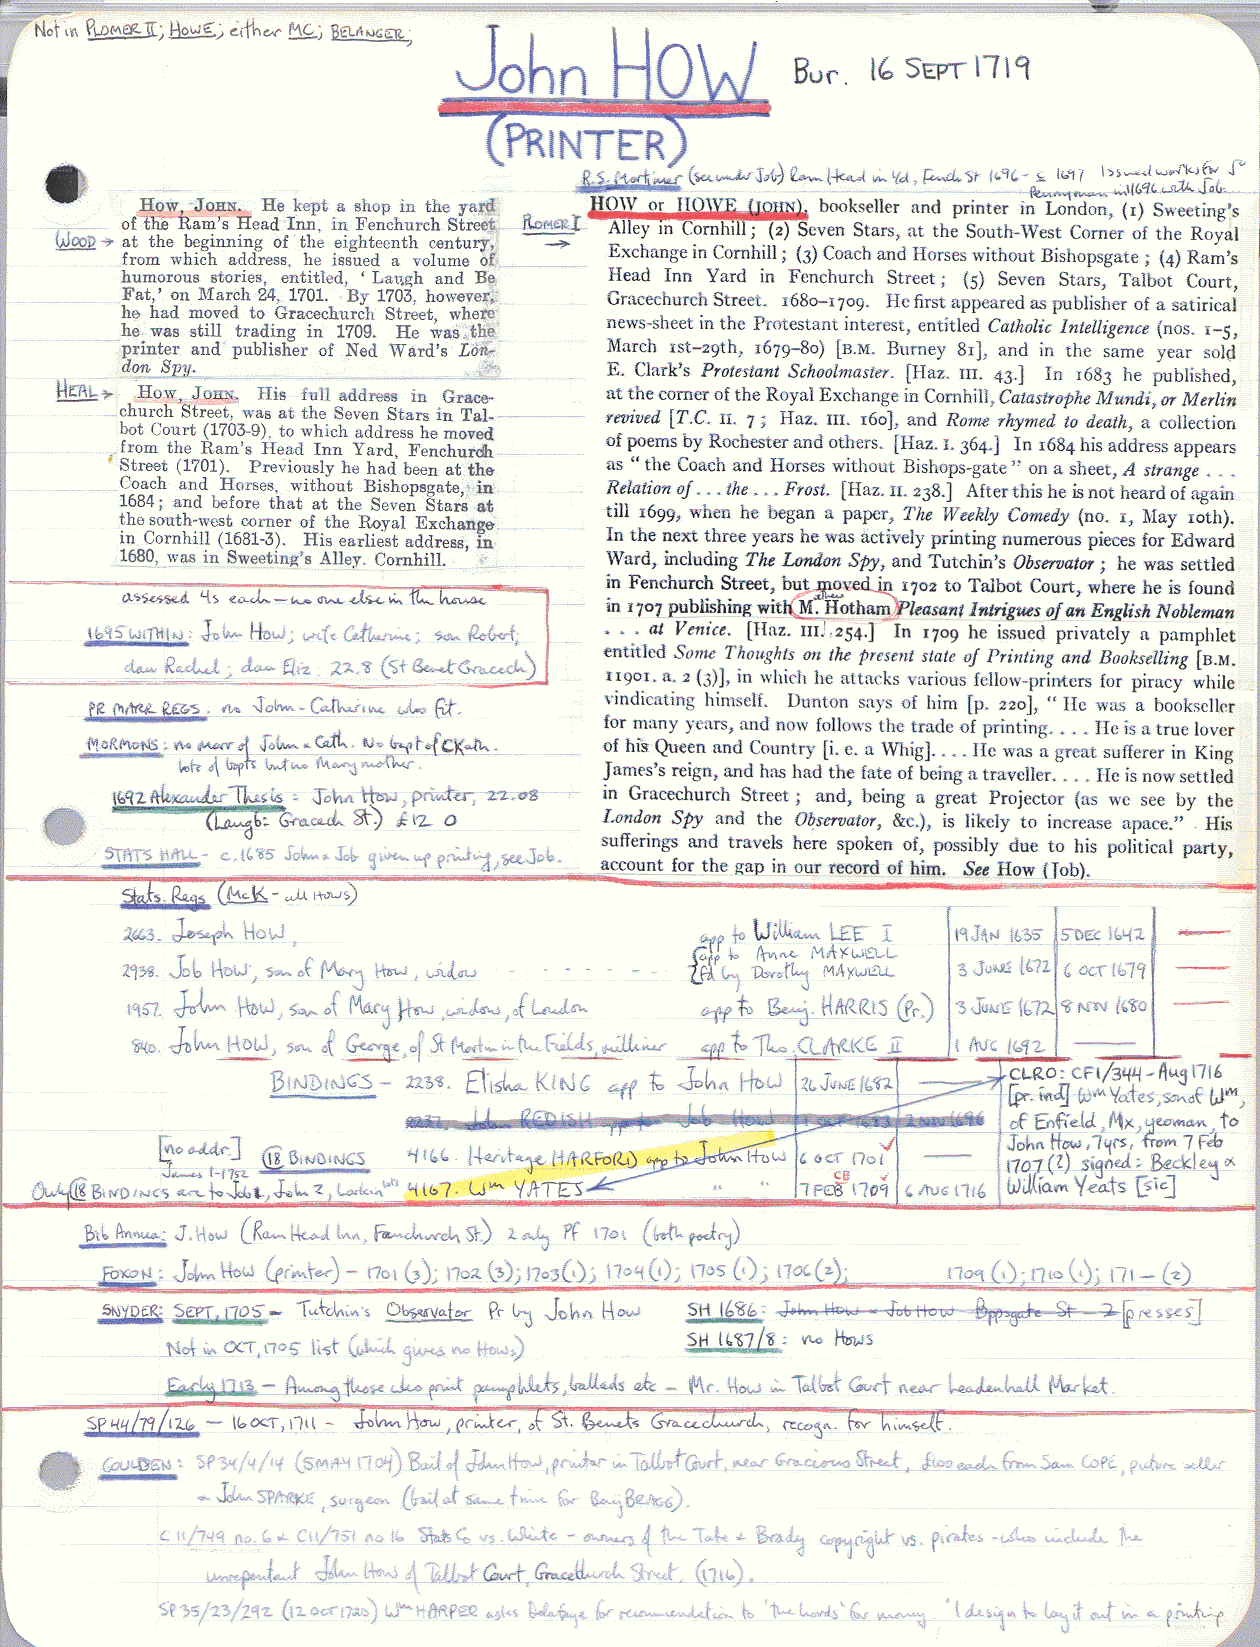 Not in PLOMER II; HOWE; either MC; BELANGER;
John HOW
Bur. 16 SEPT 1719
(PRINTER)
R.S. Mortimer (see under Job) Ram Head in Yd, Fench St 1696 - 1697 Issued works for J
Pennyman in 1696 with Job...
WOOD →
How, JOHN. He kept a shop in the yard
of the Ram's Head Inn, in Fenchurch Street
at the beginning of the eighteenth century,
from which address, he issued a volume of
humorous stories, entitled, ' Laugh and Be
Fat,' on March 24, 1701. By 1703, however,
he had moved to Gracechurch Street, where
he was still trading in 1709. He was the
printer and publisher of Ned Ward's Lon-
don Spy.
HEAL →
How, JOHN. His full address in Grace-
church Street, was at the Seven Stars in Tal-
bot Court (1703-9), to which address he moved
from the Ram's Head Inn Yard, Fenchurch
Street (1701). Previously he had been at the
Coach and Horses, without Bishopsgate, in
1684; and before that at the Seven Stars at
the south-west corner of the Royal Exchange
in Cornhill (1681-3). His earliest address, in
1680, was in Sweeting's Alley. Cornhill.
PLOMER I →
HOW or HOWE (JOHN), bookseller and printer in London, (1) Sweeting's
Alley in Cornhill; (2) Seven Stars, at the South-West Corner of the Royal
Exchange in Cornhill; (3) Coach and Horses without Bishopsgate; (4) Ram's
Head Inn Yard in Fenchurch Street; (5) Seven Stars, Talbot Court,
Gracechurch Street. 1680–1709. He first appeared as publisher of a satirical
news-sheet in the Protestant interest, entitled Catholic Intelligence (nos. 1–5,
March 1st–29th, 1679–80) [B.M. Burney 81], and in the same year sold
E. Clark's Protestant Schoolmaster. [Haz. III. 43.] In 1683 he published,
at the corner of the Royal Exchange in Cornhill, Catastrophe Mundi, or Merlin
revived [T.C. II. 7; Haz. III. 160], and Rome rhymed to death, a collection
of poems by Rochester and others. [Haz. I. 364.] In 1684 his address appears
as “ the Coach and Horses without Bishops-gate ” on a sheet, A strange ...
Relation of ... the ... Frost. [Haz. II. 238.] After this he is not heard of again
till 1699, when he began a paper, The Weekly Comedy (no. 1, May 10th).
In the next three years he was actively printing numerous pieces for Edward
Ward, including The London Spy, and Tutchin's Observator; he was settled
in Fenchurch Street, but moved in 1702 to Talbot Court, where he is found
in 1707 publishing with M. Hotham Pleasant Intrigues of an English Nobleman
... at Venice. [Haz. III. 254.] In 1709 he issued privately a pamphlet
entitled Some Thoughts on the present state of Printing and Bookselling [B.M.
11901. a. 2 (3)], in which he attacks various fellow-printers for piracy while
vindicating himself. Dunton says of him [p. 220], “ He was a bookseller
for many years, and now follows the trade of printing.... He is a true lover
of his Queen and Country [i. e. a Whig].... He was a great sufferer in King
James's reign, and has had the fate of being a traveller.... He is now settled
in Gracechurch Street; and, being a great Projector (as we see by the
London Spy and the Observator, &c.), is likely to increase apace.” His
sufferings and travels here spoken of, possibly due to his political party,
account for the gap in our record of him. See How (Job).
assessed 4s each – no one else in the house
1695 WITHIN: John How; wife Catherine; son Robert;
dau Rachel; dau Eliz. 22.8 (St Benet Gracech)
PR MARR REGS. no John-Catherine who fit.
MORMONS: no marr of John & Cath. No bapt of CKath.
lots of bapts but no Mary mother.
1692 Alexander Thesis: John How, printer, 22.08
(Langb: Gracech St.) £12 0
STATS HALL – c.1685 John & Job given up printing, see Job.
Stats. Regs (McK – all Hows)
2663. Joseph HOW, app to William LEE I 19 JAN 1635 5 DEC 1642
2938. Job How, son of Mary How, widow app to Anne MAXWELL fd by Dorothy MAXWELL 3 JUNE 1672 6 OCT 1679
1957. John How, son of Mary How, widow, of London app to Benj. HARRIS (Pr.) 3 JUNE 1672 8 NOV 1680
840. John HOW, son of George, of St Martin in the Fields, milliner app to Tho. CLARKE II 1 AUG 1692
BINDINGS – 2238. Elisha KING app to John HOW 26 JUNE 1682
2237. John REDISH app to Job How 1 OCT 1683 2 NOV 1696
[no addr.] (18 BINDINGS 4166. Heritage HARFORD app to John HOW 6 OCT 1701
James 1-1752
Only 18 BINDINGS are to Job 1, John 2, Larkin 4167. Wm YATES " " 7 FEB 1709 6 AUG 1716
CB
CLRO: CF1/344 – Aug 1716
[pr. ind] Wm Yates, son of Wm,
of Enfield, Mx, yeoman, to
John How, 7yrs, from 7 Feb
1707(?) signed: Beckley &
William Yeats [sic]
Bib Annua: J. How (Ram Head Inn, Fanchurch St.) 2 only PF 1701 (both poetry)
FOXON: John How (printer) – 1701 (3); 1702 (3); 1703 (1); 1704 (1); 1705 (1); 1706 (2); 1709 (1); 1710 (1); 171– (2)
SNYDER: SEPT, 1705 – Tutchin's Observator Pr by John How
SH 1686: John How & Job How Bppsgate St – 2 [presses]
Not in OCT, 1705 list (which gives no Hows)
SH 1687/8: no Hows
Early 1713 – Among those who print pamphlets, ballads etc – Mr. How in Talbot Court near Leadenhall Market.
SP 44/79/126 – 16 OCT, 1711 – John How, printer, of St. Benets Gracechurch, recogn. for himself.
GOULDEN: SP34/4/14 (5 MAY 1704) Bail of John How, printer in Talbot Court, near Gracious Street, £100 each from Sam COPE, picture seller
& John SPARKE, surgeon (bail at same time for Benj BRAGG).
C11/749 no. 6 & C11/751 no 16 Stats Co vs. White – owners of the Tate & Brady copyright vs. pirates – who include the
unrepentant John How of Talbot Court, Gracechurch Street. (1716).
SP35/23/292 (12 OCT 1720) Wm HARPER asks Delafaye for recommendation to 'the Lords' for money. 'I design to lay it out in a printing